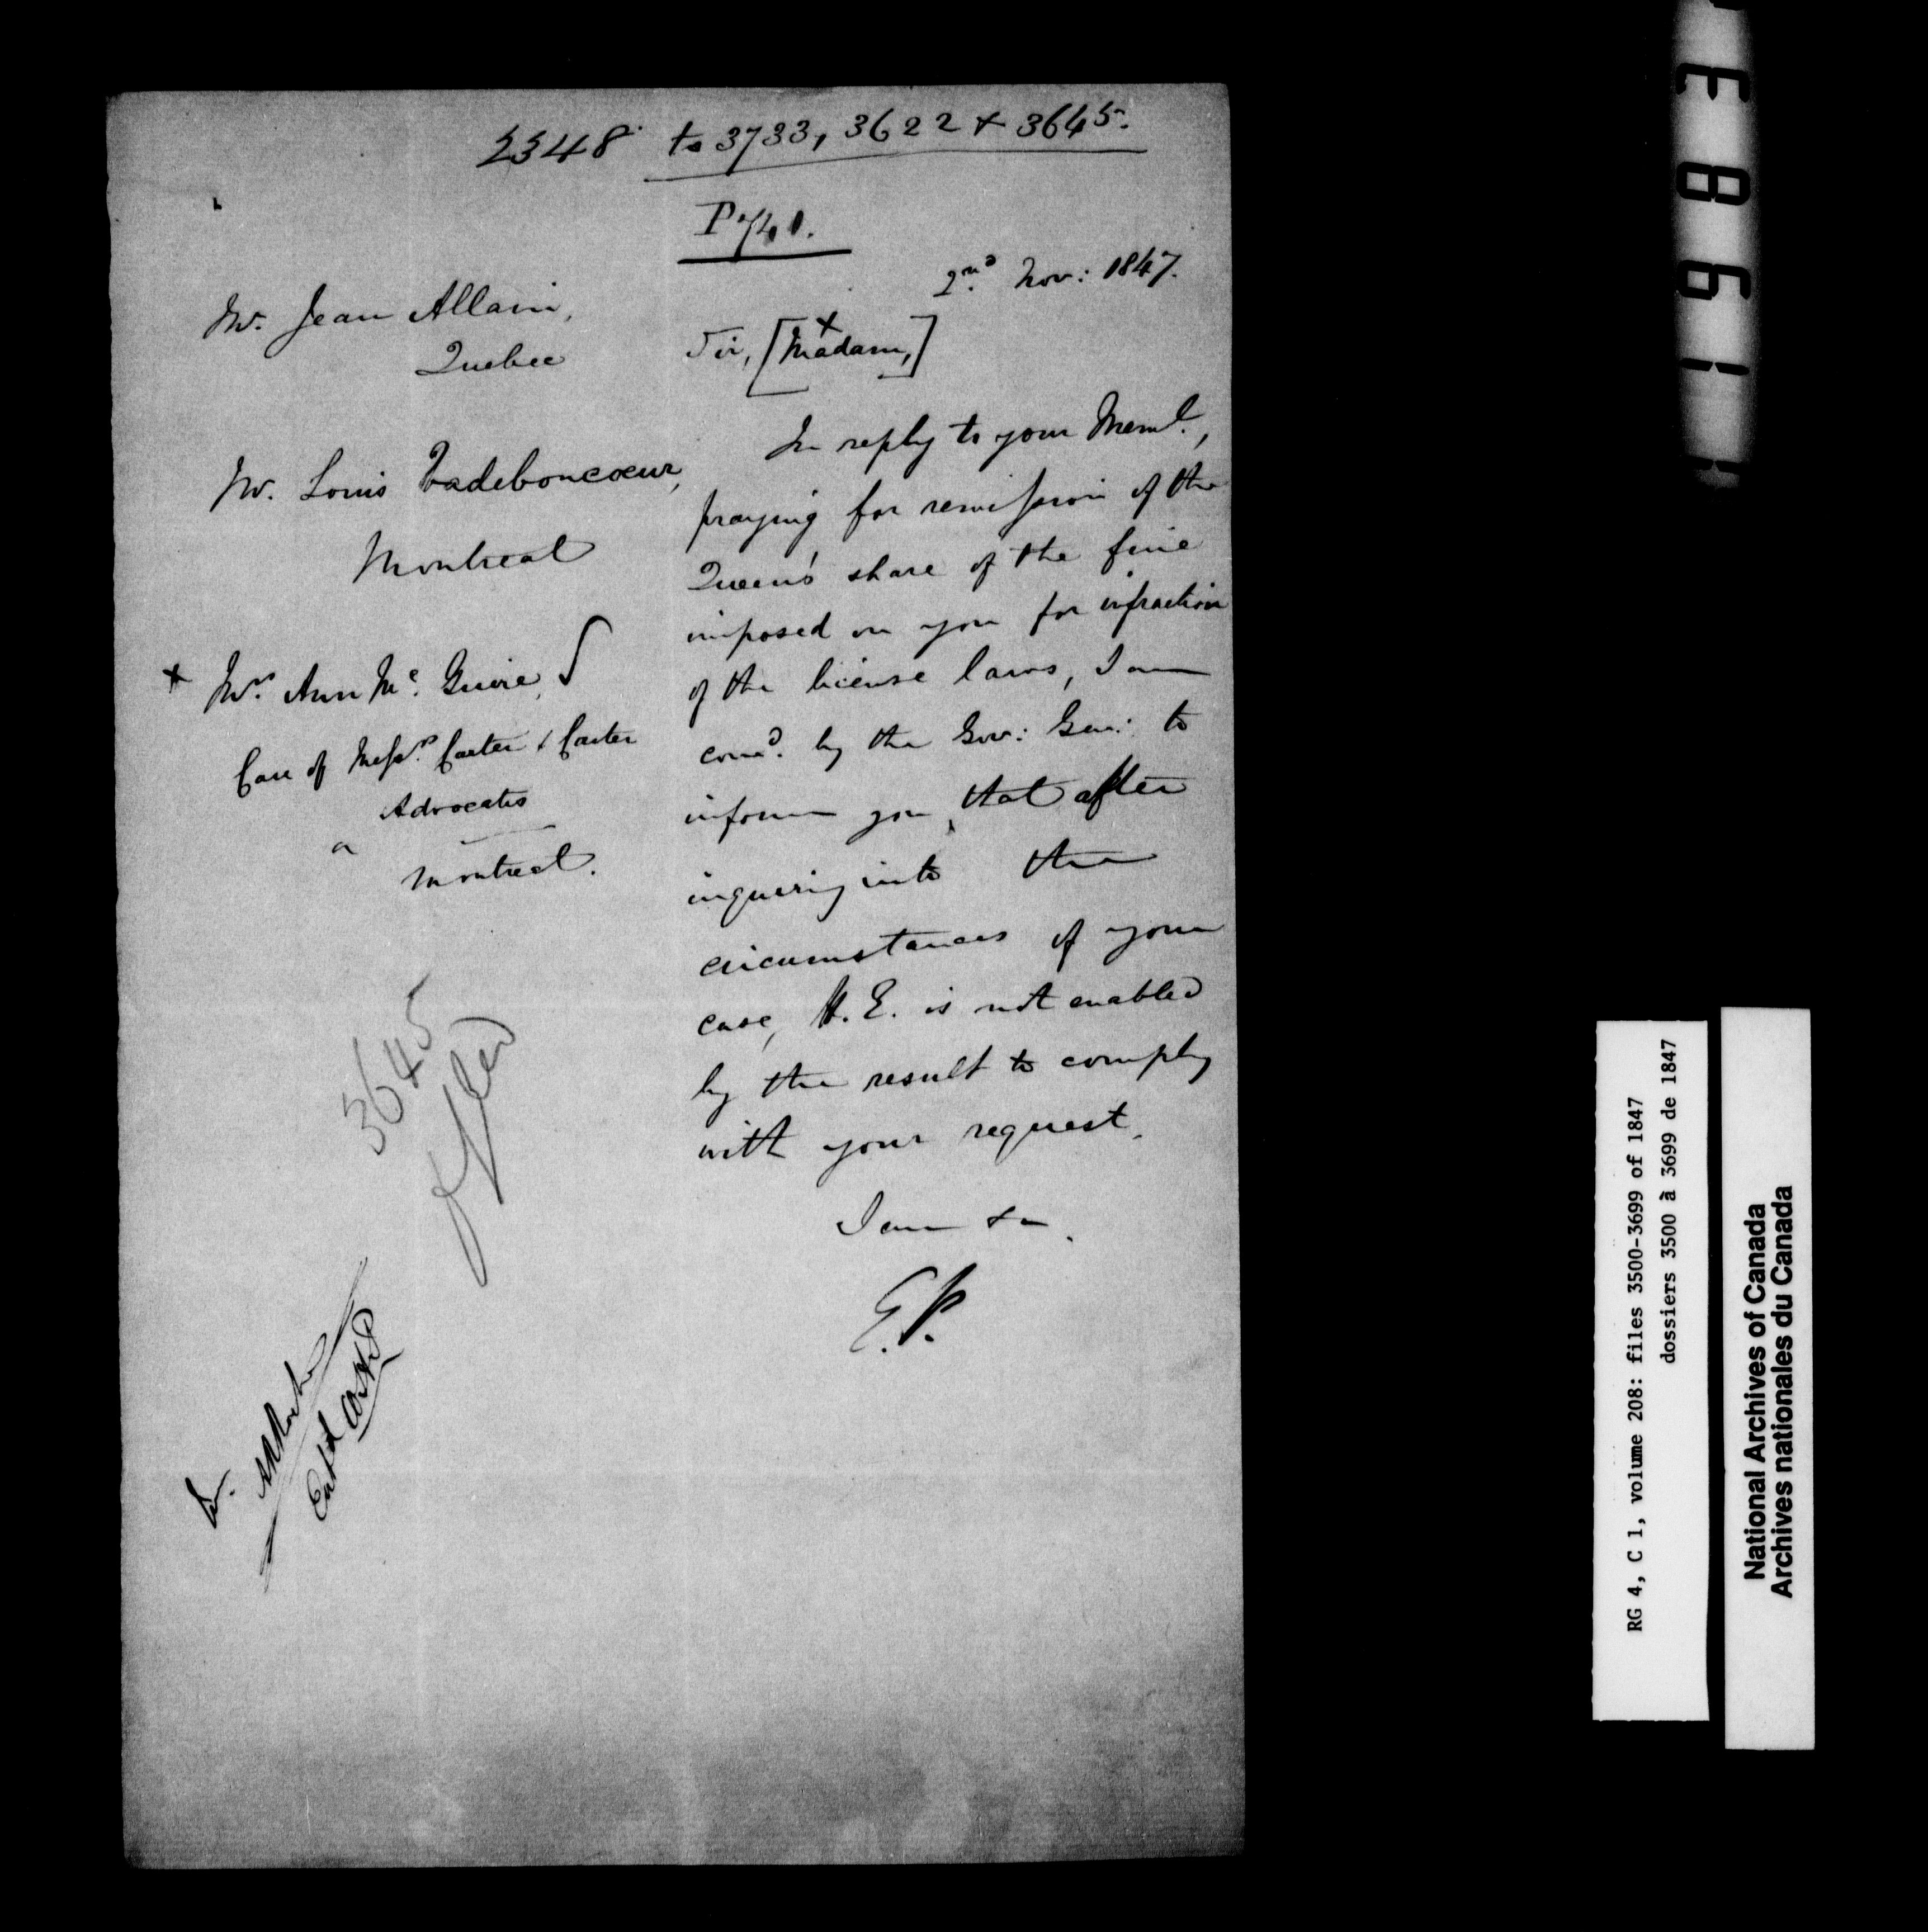 2348 to 3733, 3622 & 3645.
P 740.
2nd Nov: 1847.
Mr. Jean Allain,
Quebec
Mr. Louis Vadeboncoeur,
Montreal
x Mrs. Ann Mc. Guire,
Care of Messrs. Carter & Carter
Advocates
Montreal.
Sir, [Madam,] x
In reply to your Meml.,
praying for remission of the
Queen's share of the fine
imposed on you for infraction
of the license laws, I am
comd. by the Gov: Gen: to
inform you, that after
inquiring into the
circumstances of your
case, H. E. is not enabled
by the result to comply
with your request.
I am &c.
E.P.
3645
Entd
RG 4, C 1, volume 208: files 3500-3699 of 1847
dossiers 3500 à 3699 de 1847
National Archives of Canada
Archives nationales du Canada